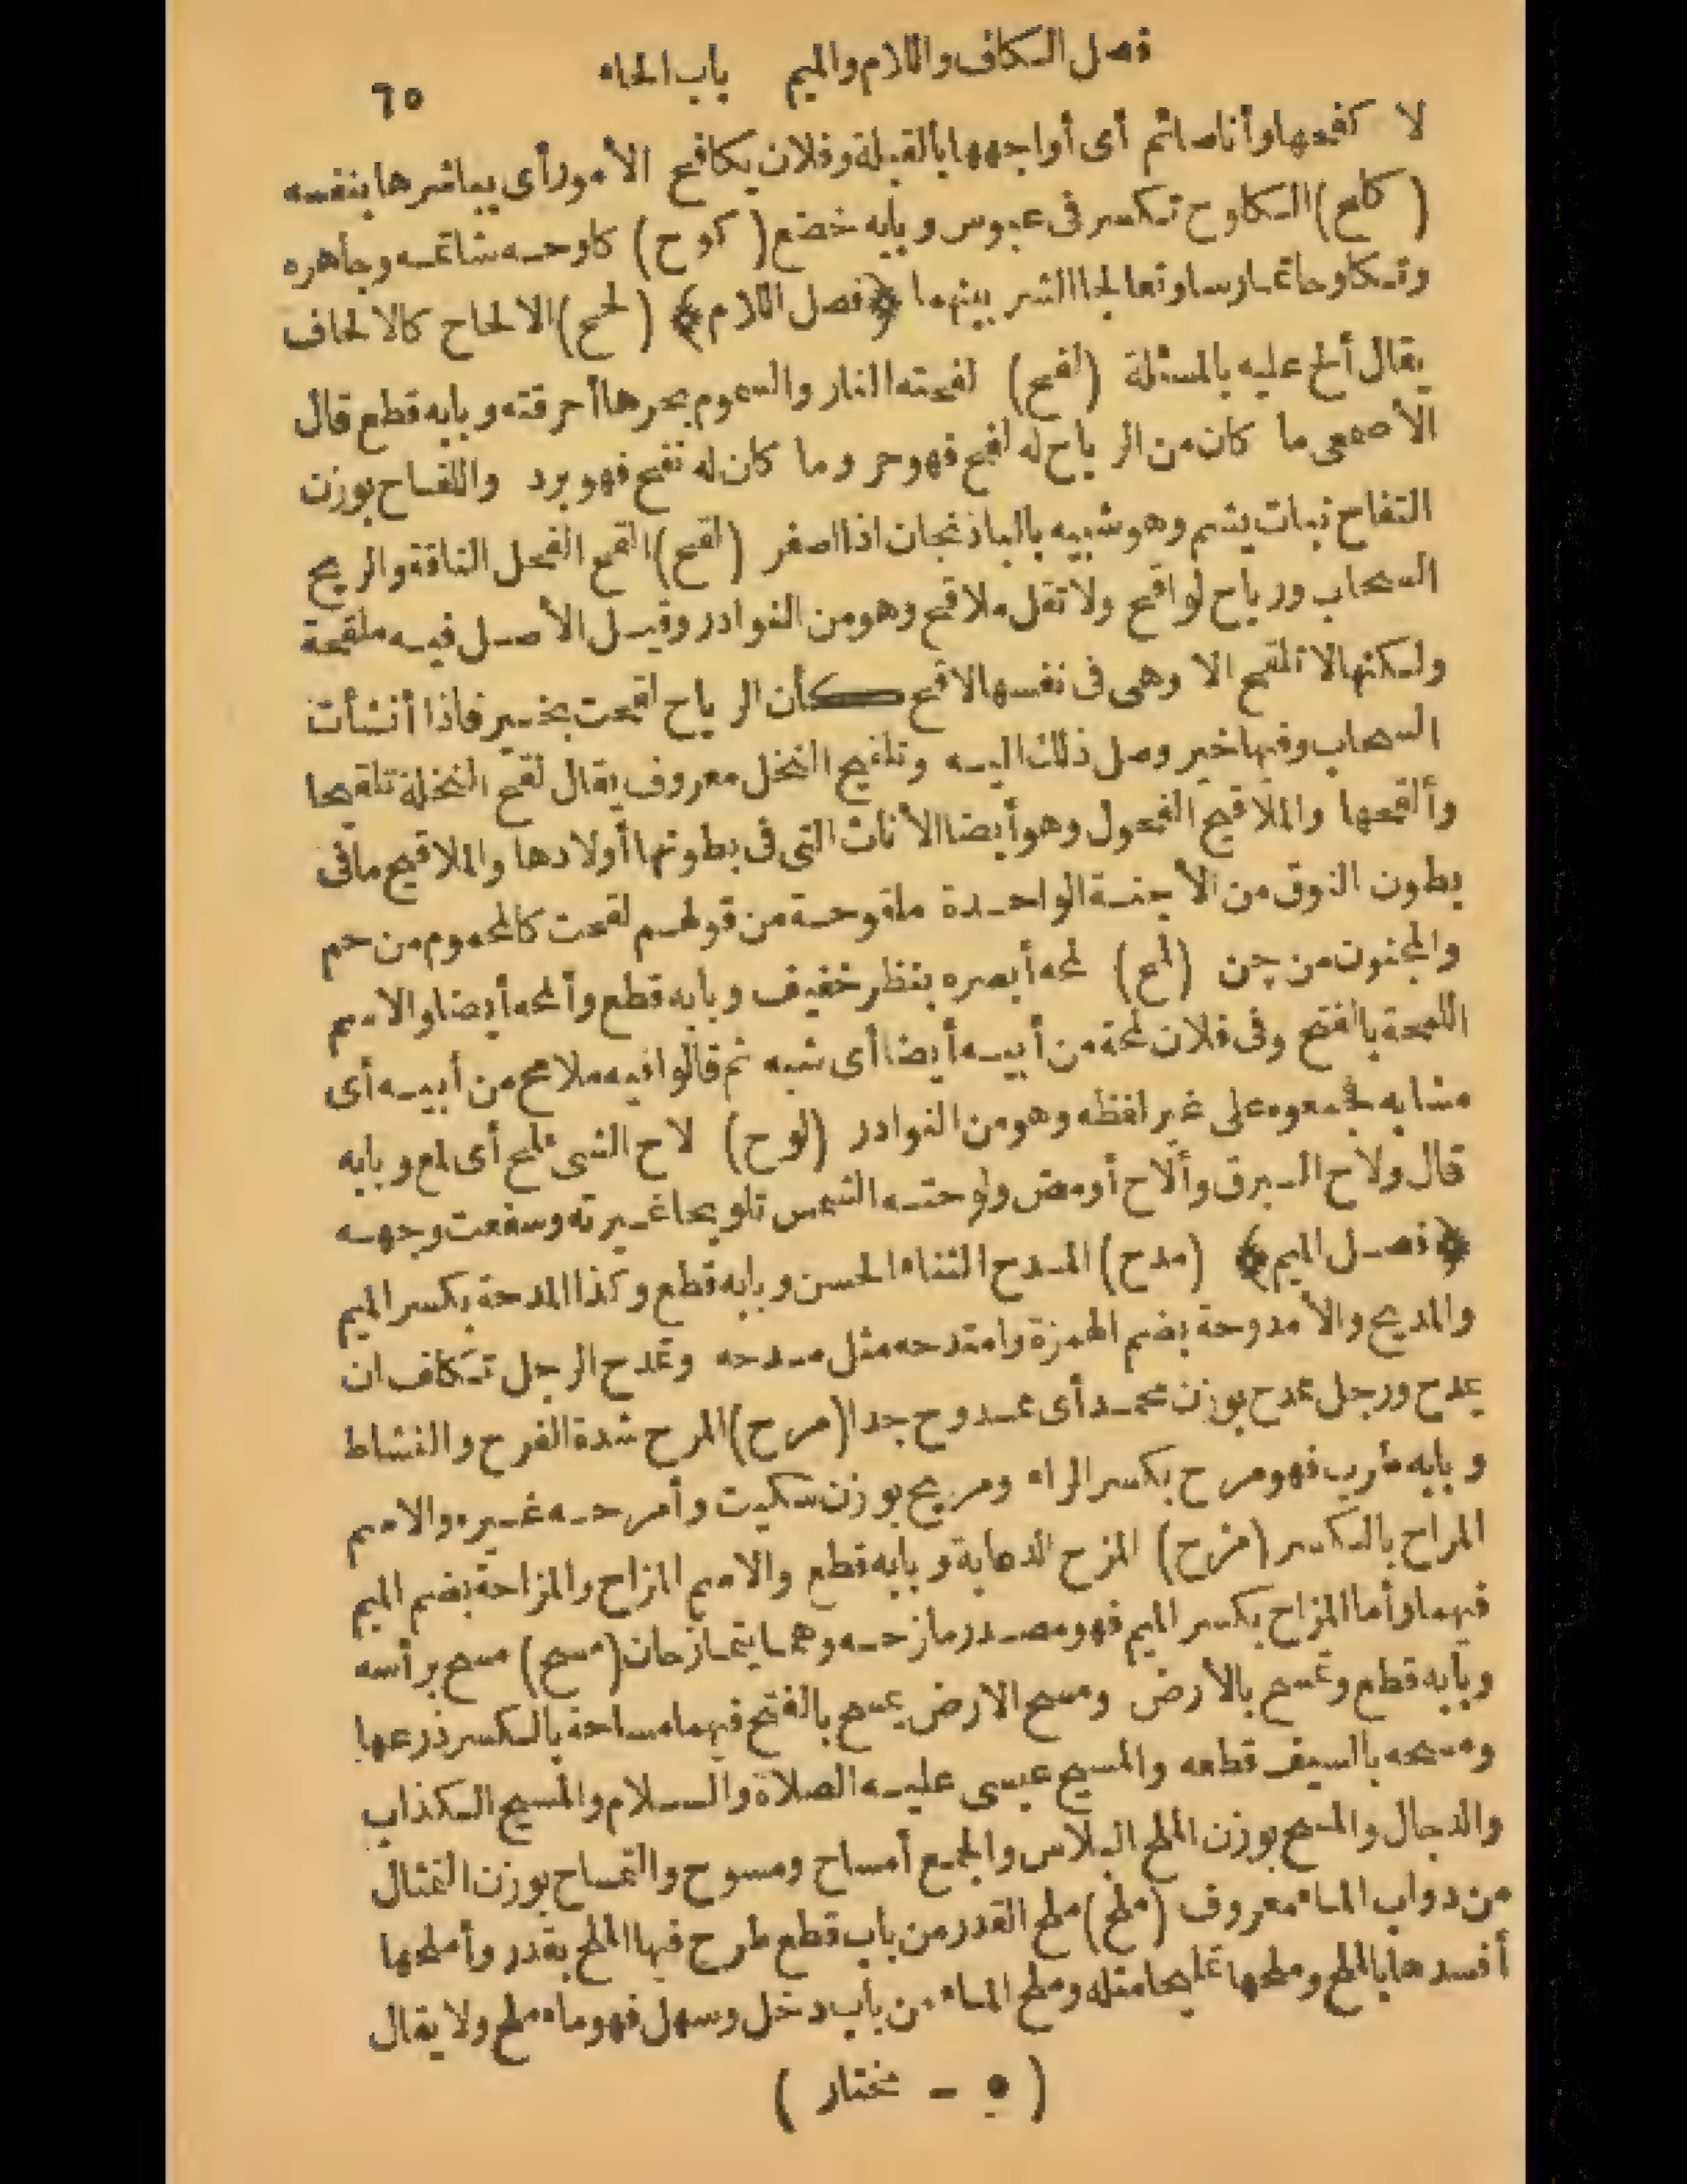 فصل الكاف واللام والميم باب الحاء ٦٥
لا كفحها وأنا صائم أى أواجهها بالقبلة وفلان يكافح الأمور أى يباشرها بنفسه
(كلح) الكلوح تكسر فى عبوس وبابه خضع (كوح) كاوحه شاتمه وجاهره
وتكاوحا تمارسا وتعالجا الشر بينهما ﴿فصل اللام﴾ (لحح) الالحاح كالالحاف
يقال ألح عليه بالمسئلة (لفح) لفحته النار والسموم بحرها أحرقته وبابه قطع قال
الأصمعى ما كان من الرياح له لفح فهو حر وما كان له نفح فهو برد واللفاح بوزن
التفاح نبات يشم وهو شبيه بالباذنجان اذا اصفر (لقح) القح الفحل الناقة والريح
السحاب ورياح لواقح ولا تقل ملاقح وهو من النوادر وقيل الأصل فيه ملقحة
ولكنها لا تلقح الا وهى فى نفسها لاقح كأن الرياح لقحت بخير فاذا أنشأت
السحاب وفيها خير وصل ذلك اليه وتلقيح النخل معروف يقال لقح النخلة تلقيحا
وألقحها والملاقح الفحول وهو أيضا الأناث التى فى بطونها أولادها والملاقيح ما فى
بطون النوق من الأجنة الواحدة ملقوحة من قولهم لقحت كالمحموم من حم
والمجنون من جن (لمح) لمحه أبصره بنظر خفيف وبابه قطع وألمحه أيضا والاسم
اللمحة بالفتح وفى فلان لمحة من أبيه أيضا أى شبه ثم قالوا فيه ملامح من أبيه أى
مشابه فجمعوه على غير لفظه وهو من النوادر (لوح) لاح الشى تلمح أى لمع وبابه
قال ولاح البرق وألاح أومض ولوحته الشمس تلويحا غيرته وسفعت وجهه
﴿فصل الميم﴾ (مدح) المدح الثناء الحسن وبابه قطع وكذا المدحة بكسر الميم
والمديح والأمدوحة بضم الهمزة وامتدحه مثل مدحه وتمدح الرجل تكلف ان
يمدح ورجل ممدح بوزن محمد أى ممدوح جدا (مرح) المرح شدة الفرح والنشاط
وبابه طرب فهو مرح بكسر الراء ومريح بوزن سكيت وأمرحه غيره والاسم
المراح بالكسر (مزح) المزح الدعابة وبابه قطع والاسم المزاح والمزاحة بضم الميم
فيهما وأما المزاح بكسر الميم فهو مصدر مازحه وهما يتمازحان (مسح) مسح برأسه
وبابه قطع وتمسح بالأرض ومسح الارض يمسح بالفتح فيهما مساحة بالكسر ذرعها
ومسحه بالسيف قطعه والمسيح عيسى عليه الصلاة والسلام والمسيح الكذاب
والدجال والمسح بوزن الملح البلاس والجمع أمساح ومسوح والتمساح بوزن التمثال
من دواب الماء معروف (ملح) ملح القدر من باب قطع طرح فيها الملح بقدر وأملحها
أفسدها بالملح وملحها تمليحا مثله وملح الماء من باب دخل وسهل فهو ماء ملح ولا يقال
(٥ - مختار)